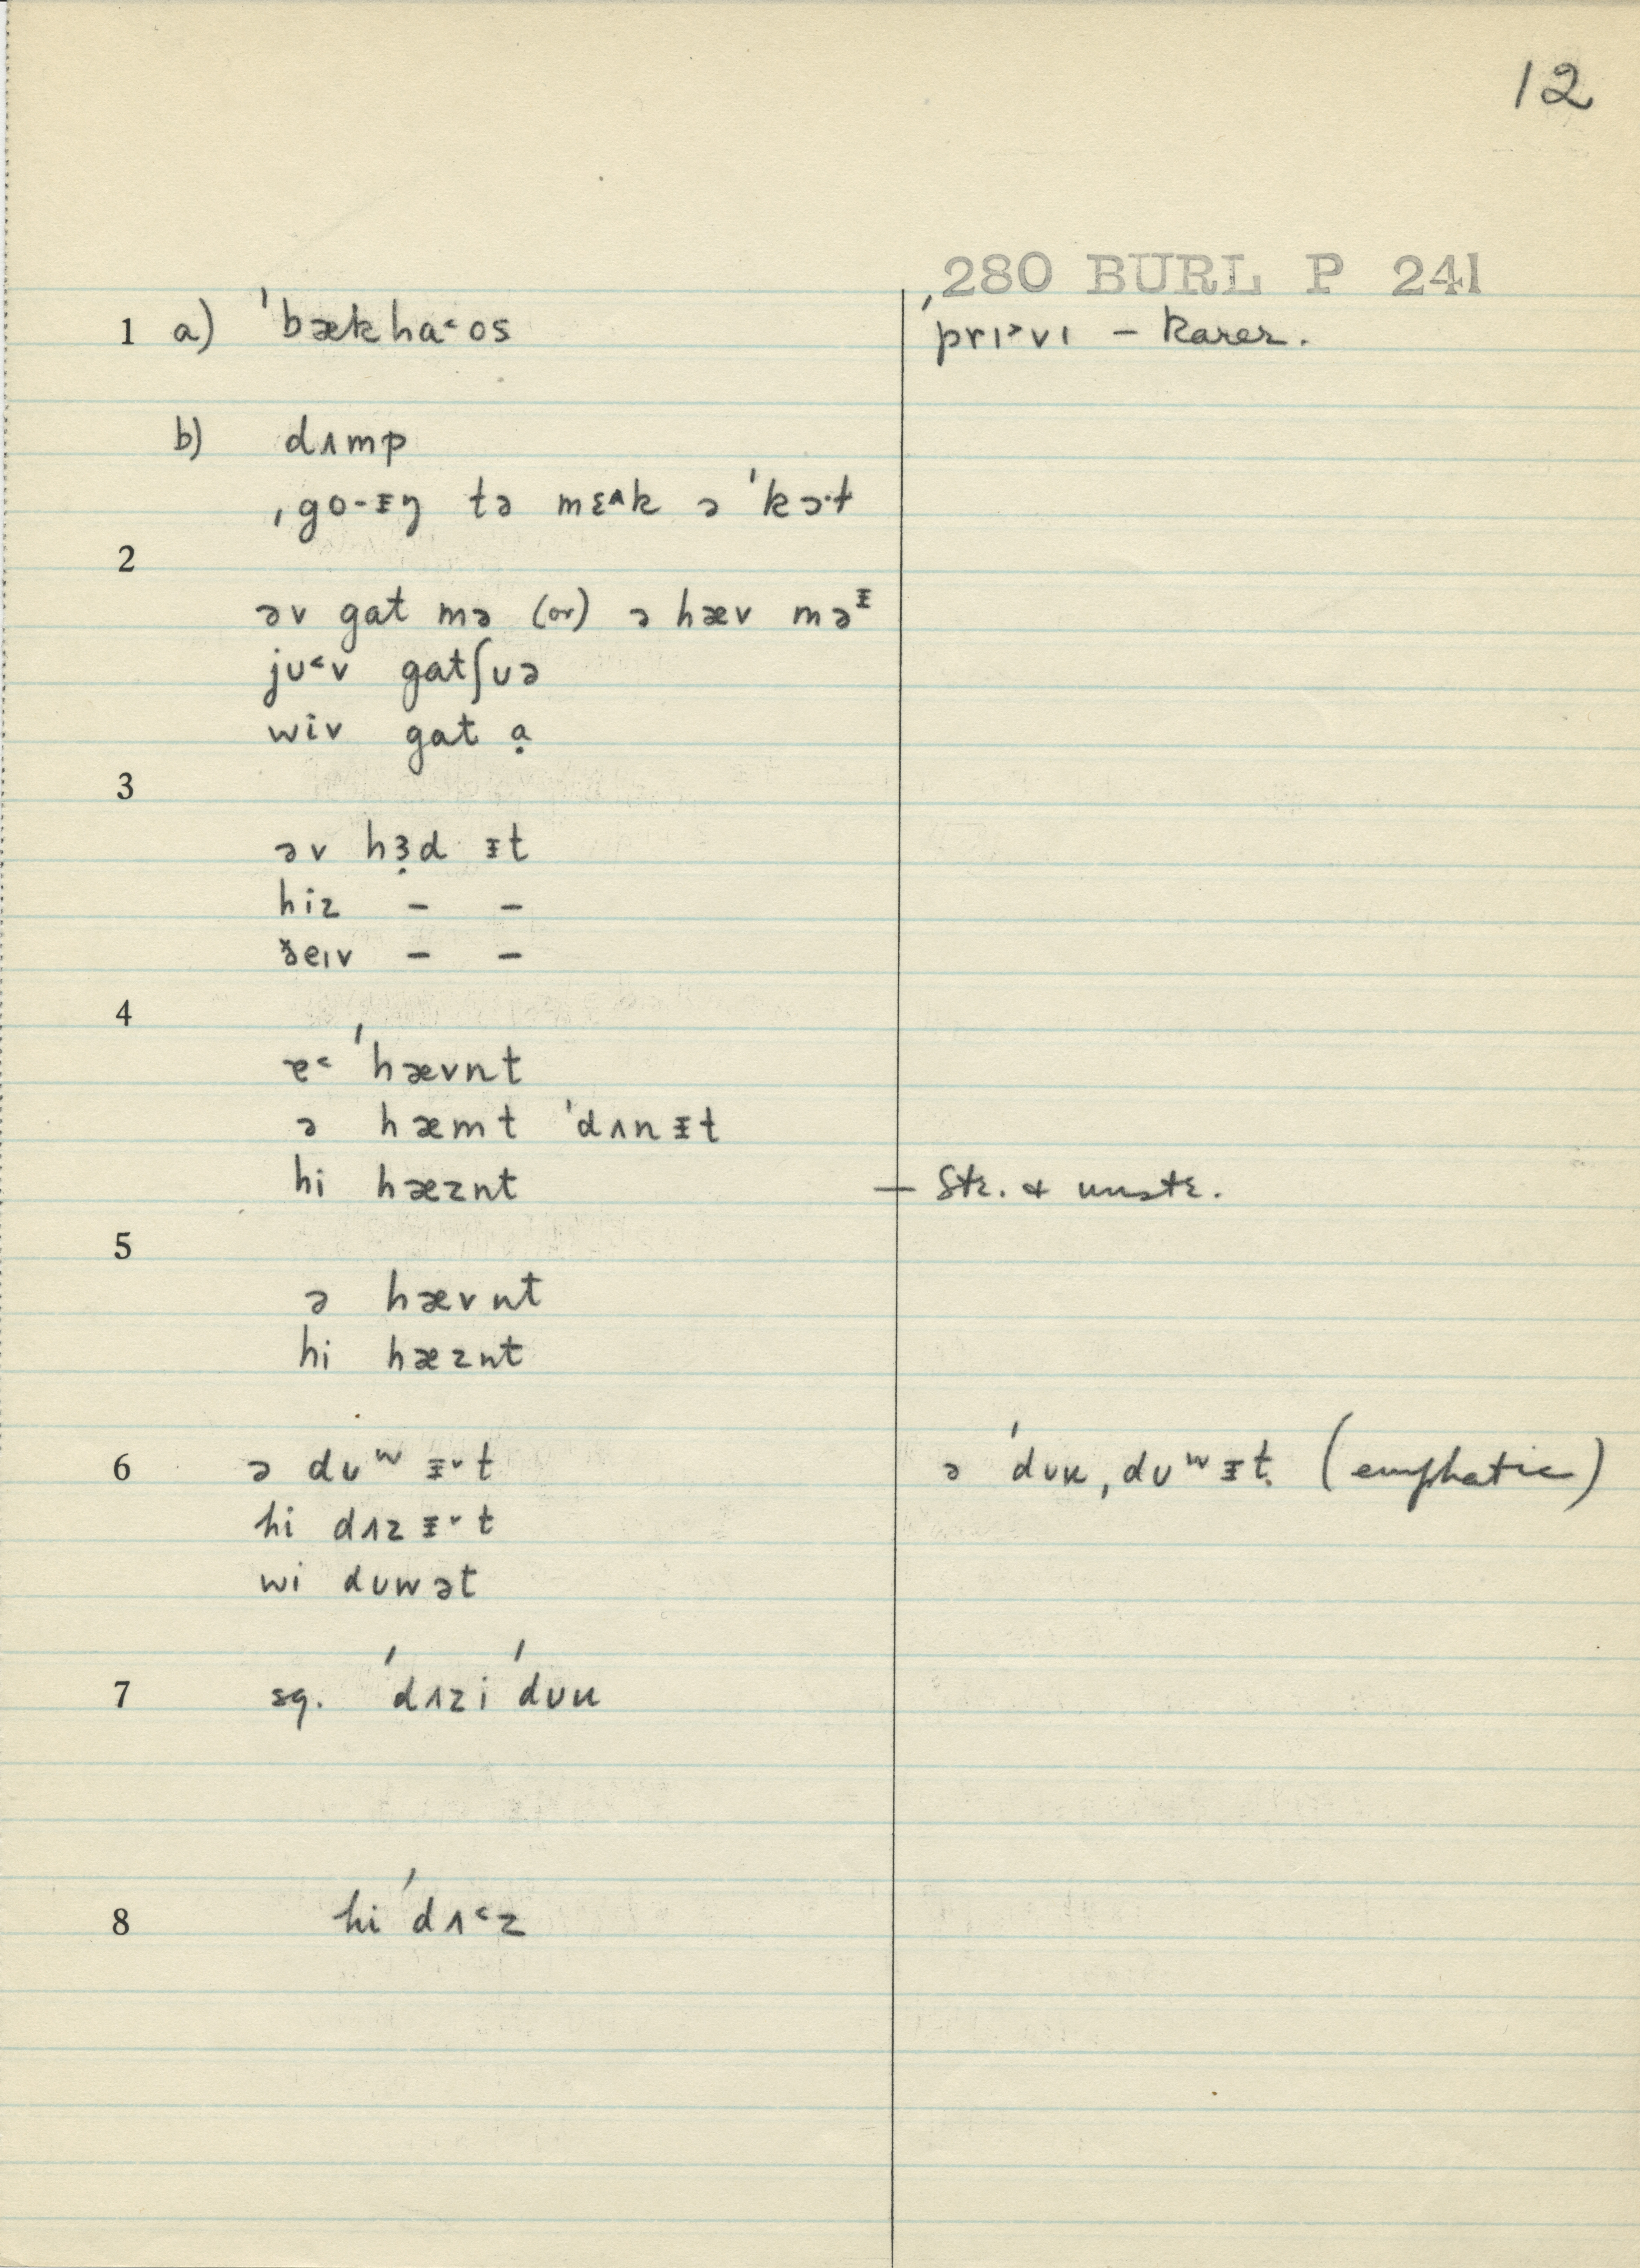 12
280 BURL P 241
1 a) ˈbækha˂ʊs ˈprɪ˃vɪ – Rarer.
b) dʌmp
ˌgo-ᵻŋ tə mɛ^k ə ˈkɔ·t
2
əv gat mə (or) ə hæv mə ᵻ
jʊ˂v gatʃʊə
wiv gat ạ
3
əv hɜ̣d ᵻt
hiz – –
ðeɪv – –
4
ɐ˂ ˈhævnt
ə hæmt ˈdʌnᵻt
hi hæznt – Str. & unstr.
5
ə hævnt
hi hæznt
6 ə dʊʷ ᵻ˅t ə ˈdʊu, dʊʷᵻt. (emphatic)
hi dʌzᵻ˅t
wi dʊwət
7 sg. ˈdʌzi ˈdʊu
8 hi ˈdʌ˂z